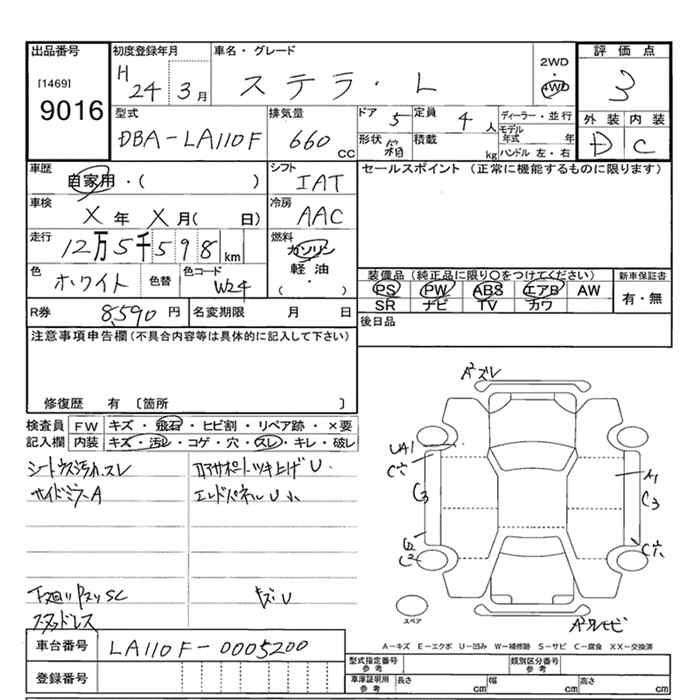 出品番号 初度登録年月 車名・グレード 2WD・4WD 評価点
[1469] H 24 3月 ステラ・L 3
9016
型式 排気量 ドア 5 定員 4人 ディーラー・並行 外装 内装
DBA-LA110F 660cc 形状 箱 積載 kg モデル年式 年 D C
ハンドル 左・右
車歴 シフト セールスポイント (正常に機能するものに限ります)
自家用・( ) IAT
車検 冷房
X年 X月( 日) AAC
走行 燃料
12万5千598km ガソリン
軽油
( ・ )
色 ホワイト 色替 色コード W24
装備品(純正品に限り○をつけてください) 新車保証書
PS PW ABS エアB AW 有・無
SR ナビ TV カワ
R券 8,590円 名変期限 月 日 後日品
注意事項申告欄(不具合内容等は具体的に記入して下さい)
修復歴 有 〔箇所 〕
検査員 FW キズ・飛石・ヒビ割・リペア跡・×要
記入欄 内装 キズ・汚レ・コゲ・穴・スレ・キレ・破レ
シート大汚れ、スレ ロアサポートツキ上げU
サイドミラーA エンドパネルU小
下廻りPスリSC キズU
スタッドレス
A²ズレ
UA1
C穴
C3
C2
A1
C3
C穴
スペア
A-キズ E-エクボ U-凹み W-補修跡 S-サビ C-腐食 XX-交換済
車台番号 LA110F-0005200
登録番号
型式指定番号 参考 類別区分番号 参考
車庫証明用 参考 長さ cm 幅 cm 高さ cm